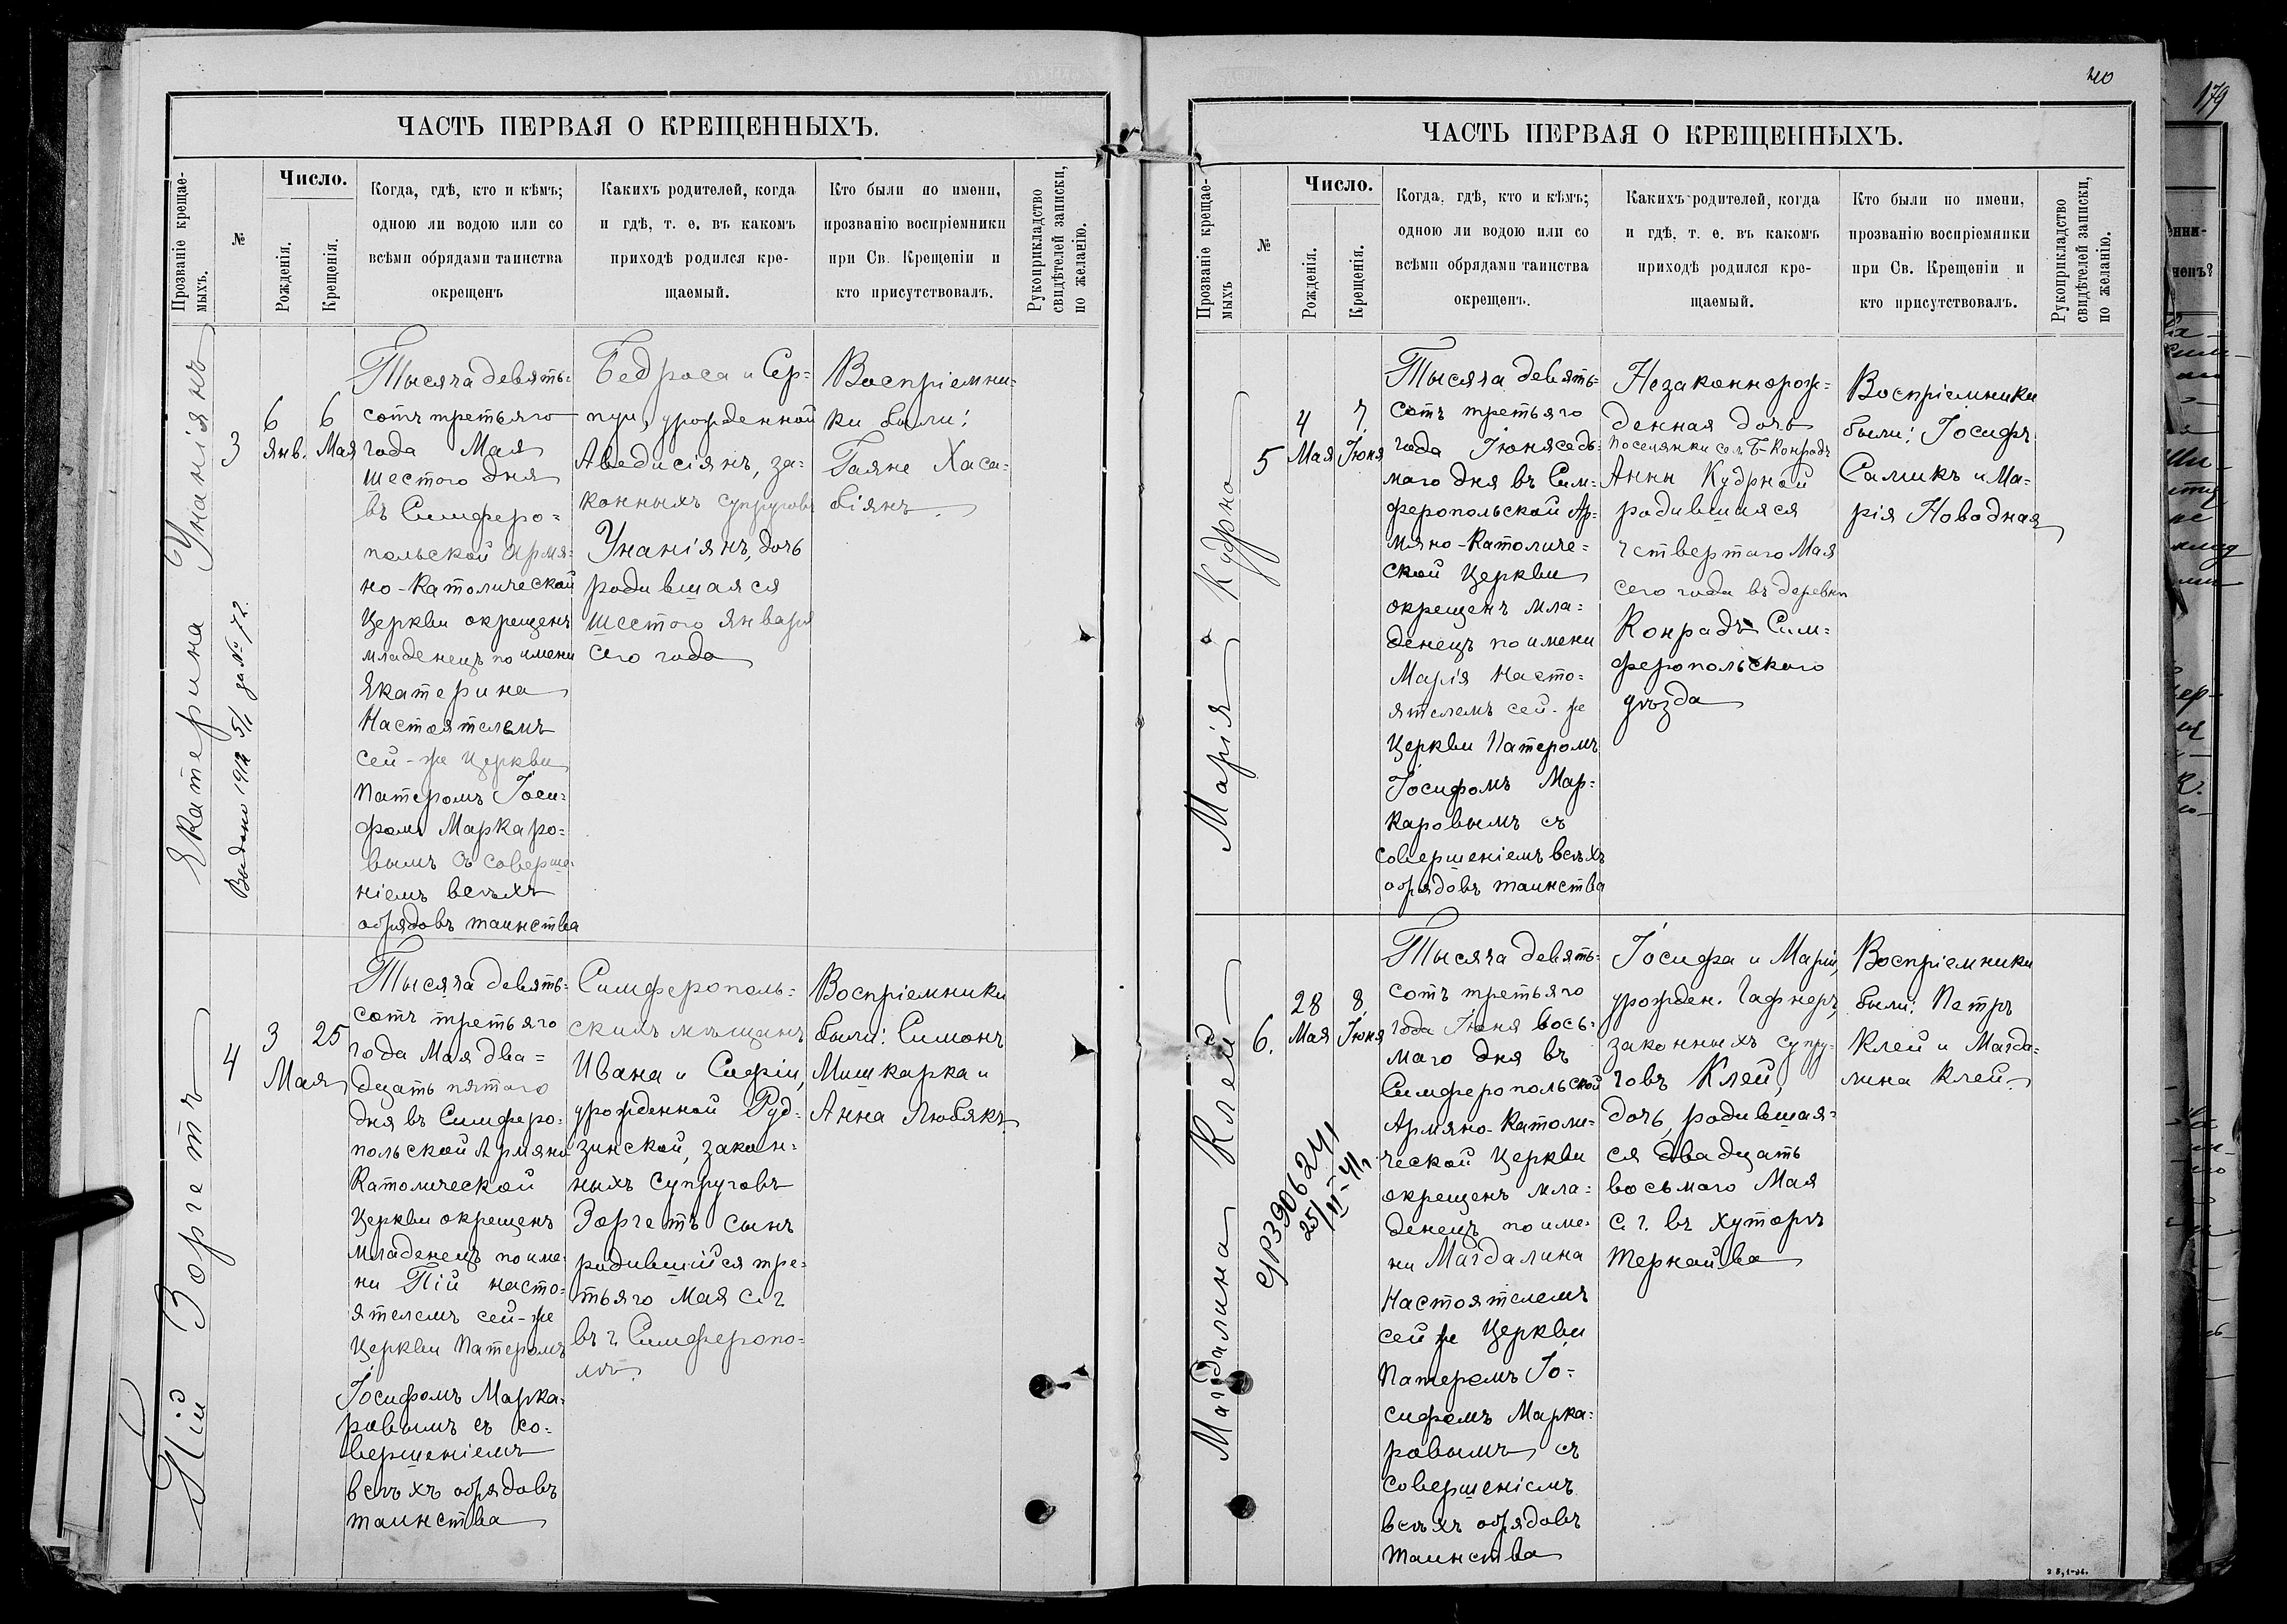 ЧАСТЬ ПЕРВАЯ О КРЕЩЕННЫХЪ.
Прозваніе крещае-
мыхъ.
№
Число.
Рожденія.
Крещенія.
Когда, гдѣ, кто и кѣмъ;
одною ли водою или со
всѣми обрядами таинства
окрещенъ
Какихъ родителей, когда
и гдѣ, т. е. въ какомъ
приходѣ родился кре-
щаемый.
Кто были по имени,
прозванію воспріемники
при Св. Крещеніи и
кто присутствовалъ.
Рукоприкладство
свидѣтелей записки,
по желанію.
Екатерина Унаніянъ
Выдано 1912 5/I за № 72.
3
6
янв.
6
Мая
Тысяча девять=
сотъ третьяго
года Мая
шестого дня
въ Симферо=
польской Армя=
но-Католической
Церкви окрещенъ
младенецъ по имени
Екатерина
Настоятелемъ
сей-же Церкви
Патеромъ Іоси=
фомъ Маркаро=
вымъ съ соверше=
ніемъ всѣхъ
обрядовъ таинства
Бедроса и Сер=
пуи, урожденной
Аведисіянъ, за=
конныхъ супруговъ
Унаніянъ, дочь
родившаяся
шестого Января
сего года
Воспріемни=
ки были:
Гаяне Хаса=
біянъ.
Пій Зоргетъ
4
3
25
Мая
Тысяча девять=
сотъ третьяго
года Мая два=
дцать пятаго
дня въ Симферо=
польской Армяно
Католической
Церкви окрещенъ
младенецъ по име=
ни Пій насто=
ятелемъ сей-же
Церкви Патеромъ
Іосифомъ Марка=
ровымъ съ со=
вершеніемъ
всѣхъ обрядовъ
таинства
Симферополь=
скихъ мѣщанъ
Ивана и Софіи,
урожденной Руд=
зинской, закон=
ныхъ супруговъ
Зоргетъ сынъ
родившійся тре=
тьяго Мая с. г
въ г Симферопо=
лѣ.
Воспріемники
были: Симонъ
Мишкарка и
Анна Любякъ
210
ЧАСТЬ ПЕРВАЯ О КРЕЩЕННЫХЪ.
Прозваніе крещае-
мыхъ
№
Число.
Рожденія.
Крещенія.
Когда, гдѣ, кто и кѣмъ;
одною ли водою или со
всѣми обрядами таинства
окрещенъ.
Какихъ родителей, когда
и гдѣ, т. е. въ какомъ
приходѣ родился кре-
щаемый.
Кто были по имени,
прозванію воспріемники
при Св. Крещеніи и
кто присутствовалъ.
Рукоприкладство
свидѣтелей записки,
по желанію.
Марія Кудрно
5
4
Мая
7
Іюня
Тысяча девять=
сотъ третьяго
года Іюня седь=
маго дня въ Сим=
феропольской Ар=
мяно-Католиче=
ской Церкви
окрещенъ мла=
денецъ по имени
Марія насто=
ятелемъ сей-же
Церкви Патеромъ
Іосифомъ Мар=
каровымъ съ
совершеніемъ всѣхъ
обрядовъ таинства
Незаконнорож=
денная дочь
Поселянки сел. Б-Конрадъ
Анны Кудрной
родившаяся
четвертаго Мая
сего года въ деревни
Конрадъ Сим=
феропольскаго
уѣзда
Воспріемники
были: Іосифъ
Саликъ и Ма=
рія Новодная
Магдалина Клей
6.
28
Мая
8
Іюня
25/II-41
Тысяча девять=
сотъ третьяго
года Іюня вось=
маго дня въ
Симферопольской
Армяно-Католи=
ческой Церкви
окрещенъ мла=
денецъ по име=
ни Магдалина
Настоятелемъ
сей же Церкви
Патеромъ Іо=
сифомъ Марка=
ровымъ, съ
совершеніемъ
всѣхъ обрядовъ
таинства
Іосифа и Маріи,
урожден. Гафнеръ,
законныхъ супру=
говъ Клей,
дочь, родившая=
ся двадцать
восьмого Мая
с. г. въ хуторѣ
Тернайва
Воспріемники
были: Петръ
Клей и Магда=
лина Клей.
179